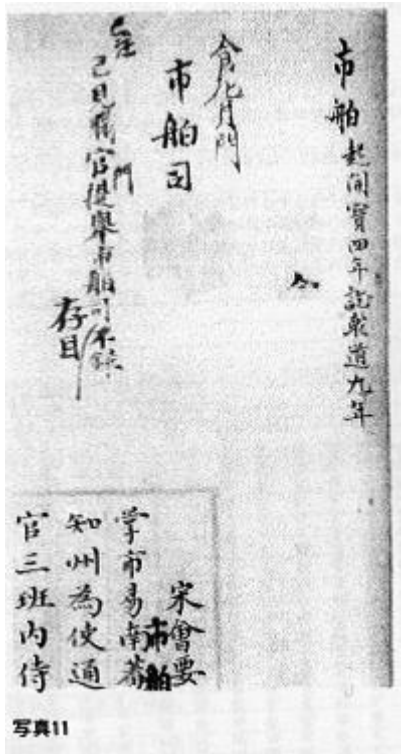 市舶起開寶四年訖乾道九年
食貨門
市舶司
注
已見職官門提舉市舶司不錄
存目
宋會要
市舶
掌市易南蕃
知州為使通
官三班內侍
写真11